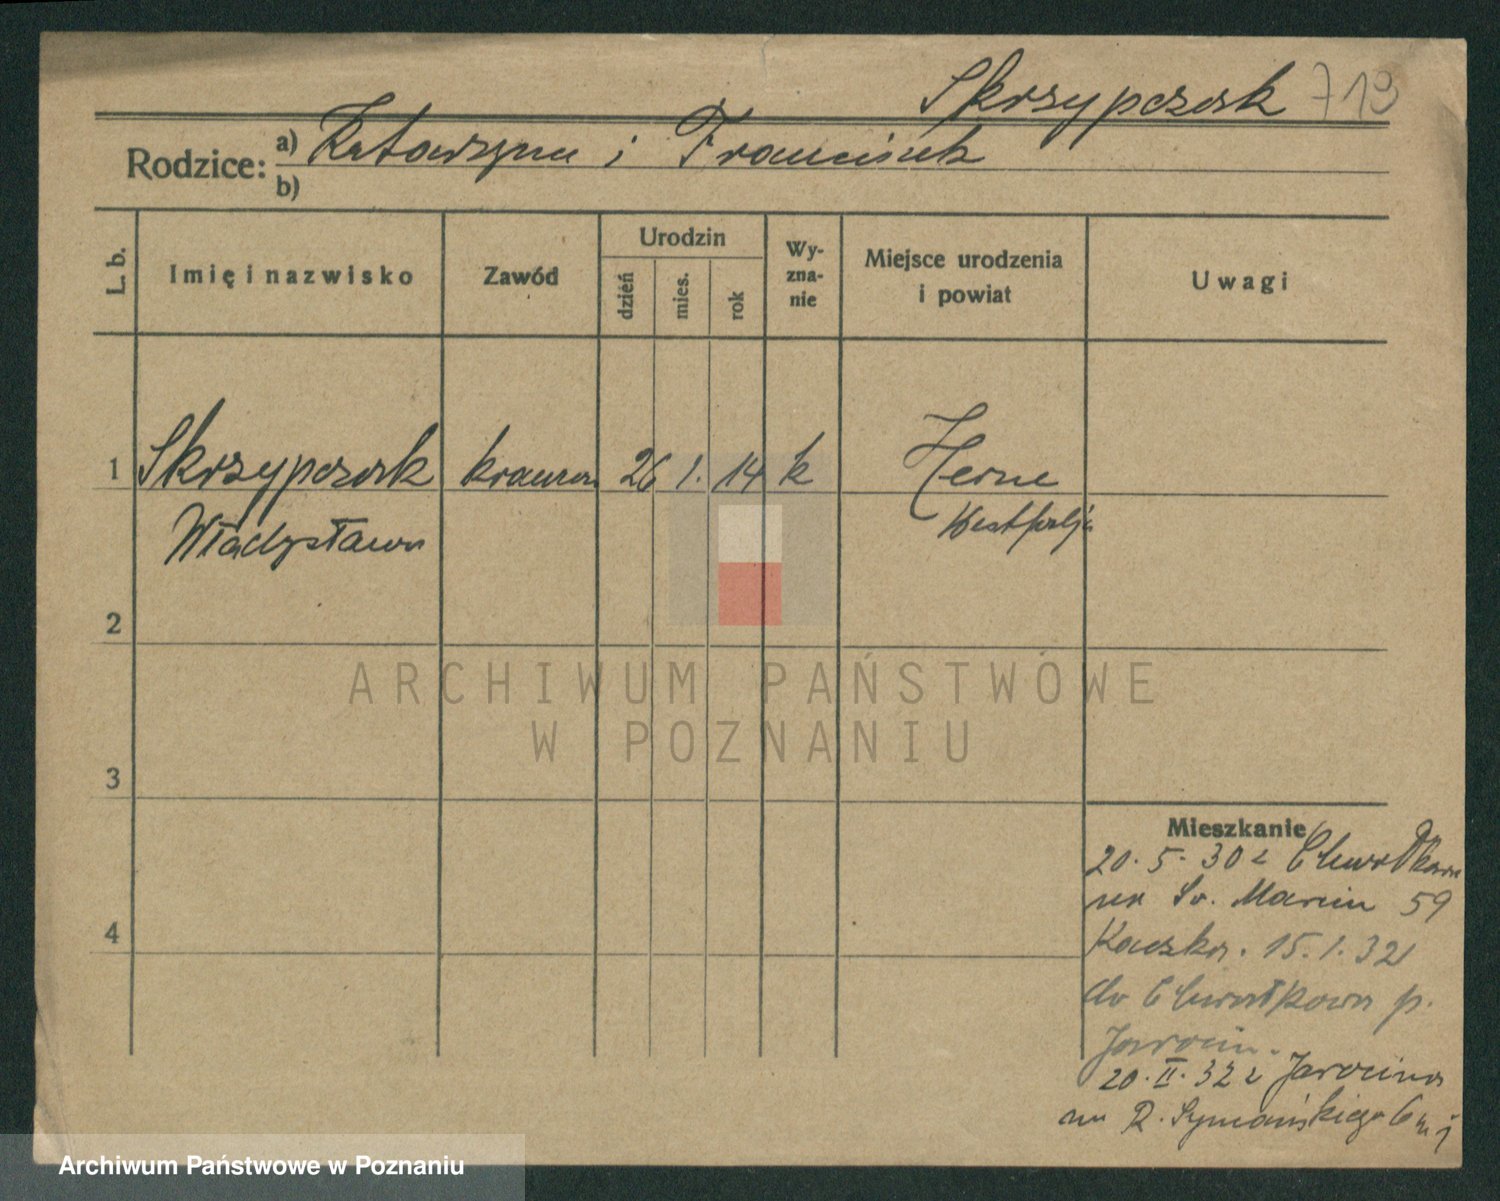 Skrzypczak 719
Rodzice: a) Katarzyna i Franciszek
b)
L. b.
Imię i nazwisko
Zawód
Urodzin
dzień
mies.
rok
Wy-
zna-
nie
Miejsce urodzenia
i powiat
Uwagi
1 Skrzypczak krawcowa 26 1. 14 k Herne
Władysława Westfalja
2
ARCHIWUM PAŃSTWOWE
W POZNANIU
3
Mieszkanie
20. 5. 30 z Chwałkowa
na Św. Marcin 59
Kaczka. 15. 1. 32
do Chwałkowa p.
Jarocin.
4
20. II. 32 z Jarocina
na R. Szymańskiego 6
Archiwum Państwowe w Poznaniu